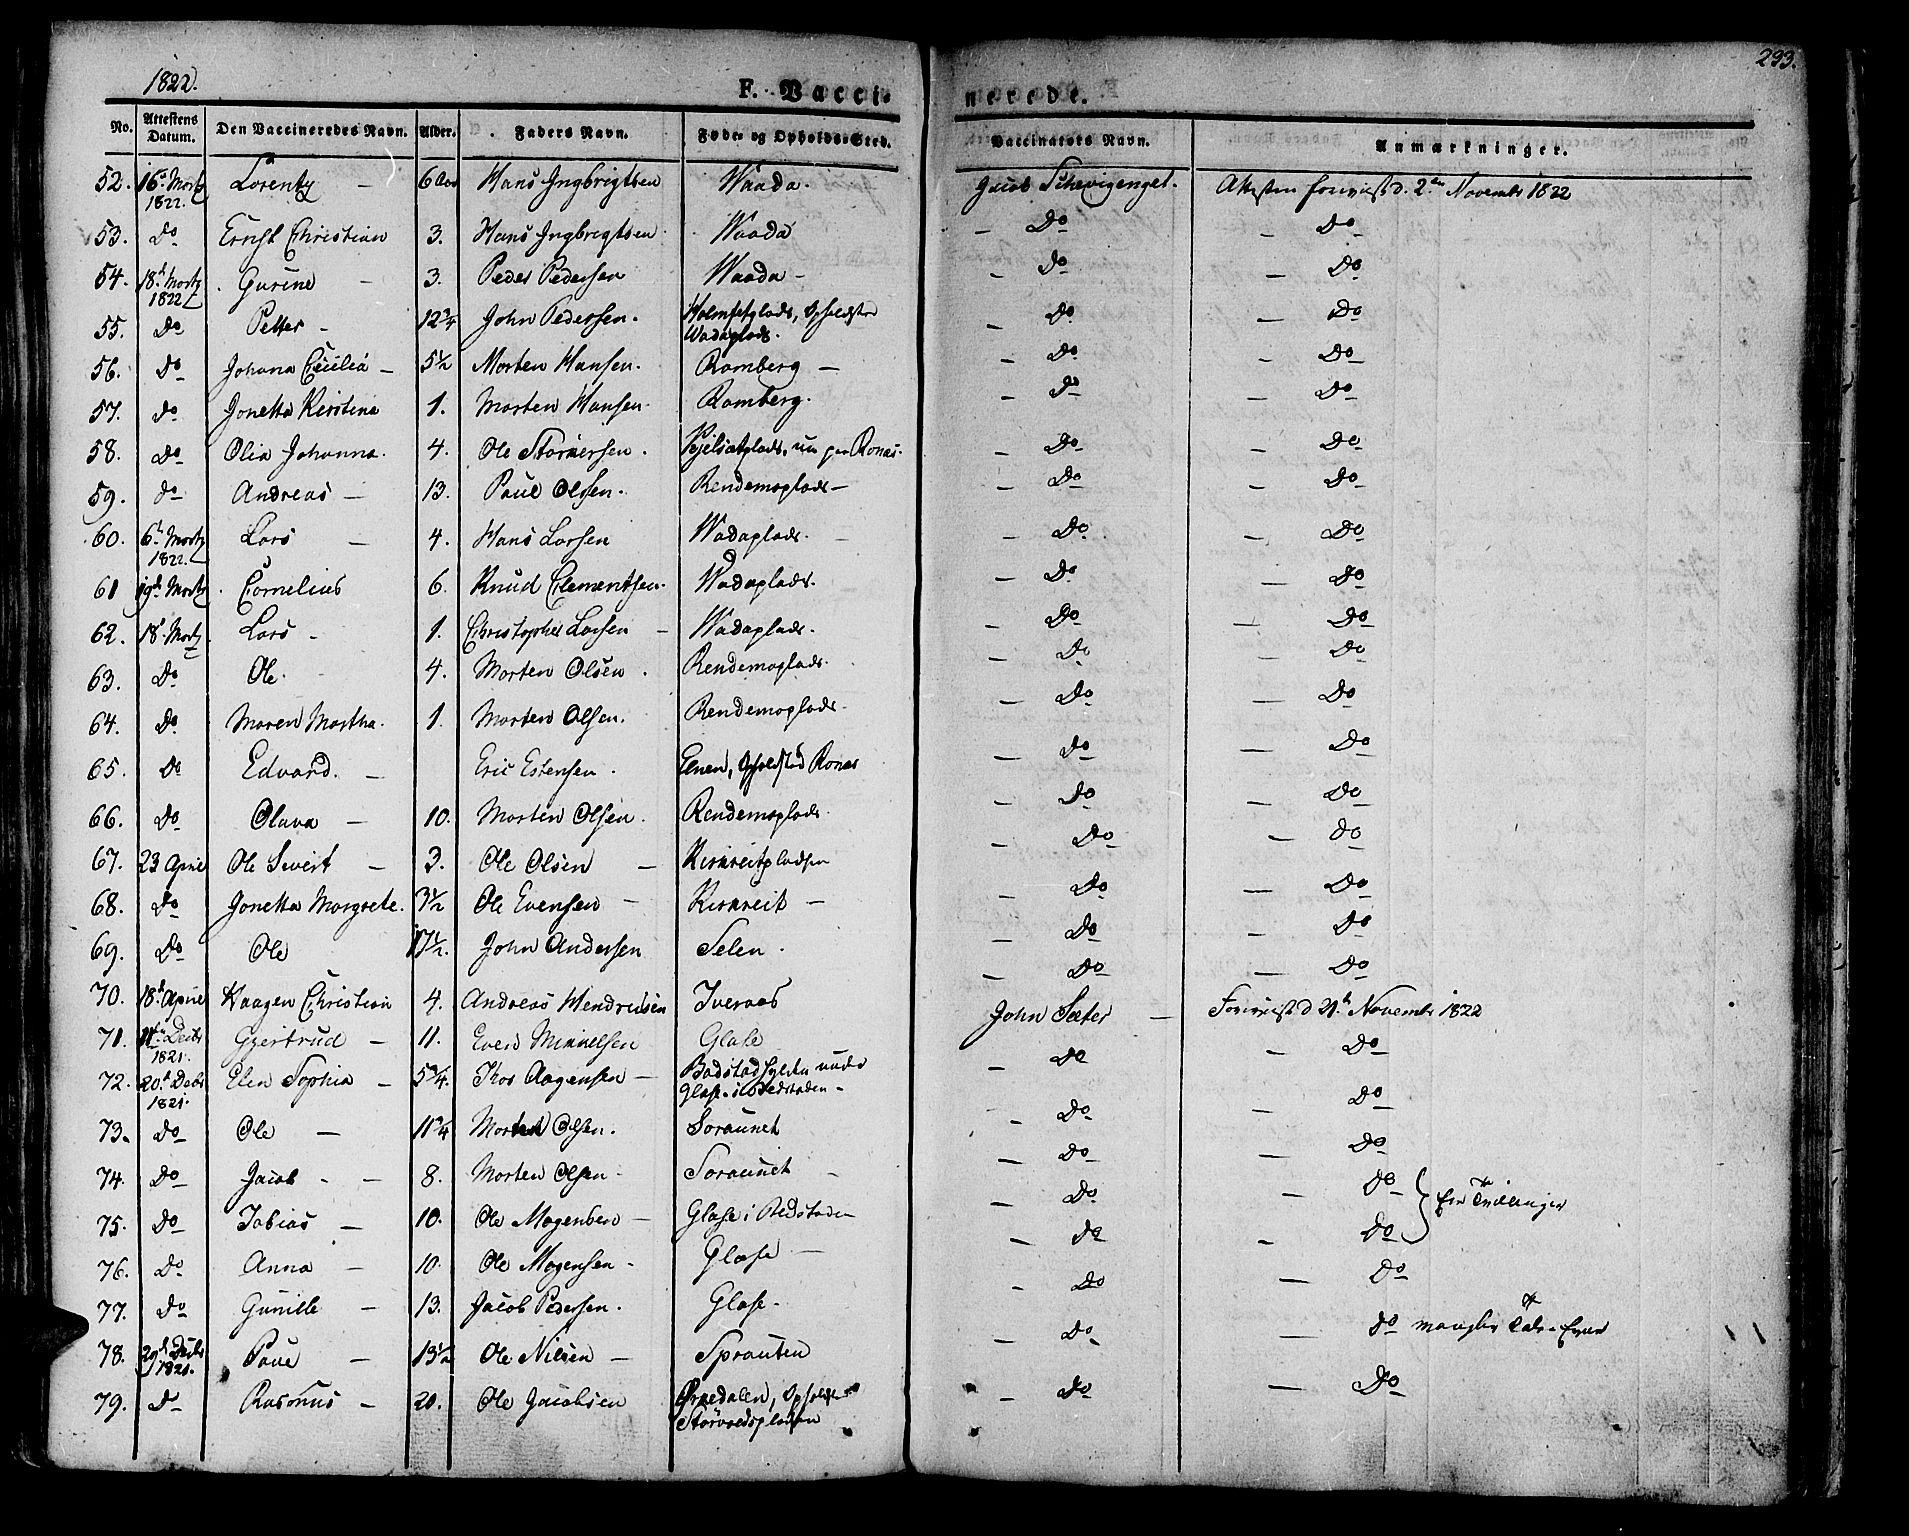 1822.
293.
F. Vacci-
nerede.
No. Attestens Datum. Den Vaccineredes Navn. Alder. Faders Navn. Føde- og Opholds-Sted. Vaccinators Navn. Anmærkninger.
52. 16de Martz 1822. Lorentz – 6 Aar Hans Ingbrigtsen Waada. Jacob Schevigenget. Attesten foreviist d. 2den November 1822
53. Do Ernst Christian 3. Hans Ingbrigtsen Waada – Do – Do
54. 18d Martz 1822 Gurine – 3. Peder Pedersen Waada – – Do – Do
55. Do Petter – 12 3/4 John Pedersen. Holmsetplads, Opholdster Wadaplads. – Do – Do
56. Do Johana Cecilia – 5 1/2 Morten Hansen. Romberg – – Do – Do
57. Do Jonetta Kerstina 1. Morten Hansen. Romberg. – Do – Do
58. Do Olia Johanna. 4. Ole Størkersen. Pejelsætplads, nu paa Ronas. – Do – Do
59. Do Andreas – 13. Poul Olsen. Rendemoplads – – Do – Do
60. 6te Martz 1822. Lars – 4. Hans Larsen Wadaplads. – – Do – Do
61 19d Martz Cornelius 6. Knud Clementsen. Wadaplads. – Do – Do
62. 18d Martz Lars – 1. Christopher Larsen – Wadaplads. – Do – Do
63. Do Ole. 4. Morten Olsen. Rendemoplads. – Do – Do
64. Do Maren Martha. 1. Morten Olsen. Rendemoplads. – Do – Do
65. Do Edvard. – Eric Estensen. Elnen, Opholdsted Ronas – Do – Do
66. Do Olava – 10. Morten Olsen. Rendemoplads. – Do – Do
67. 23 April Ole Sivert – 3. Ole Olsen – Kirkreitpladsen – Do – Do
68. Do Jonetta Margrete. 3 1/2 Ole Evensen – Kirkreit – – Do – Do
69. Do Ole 17 1/2. John Andersen Selen. – Do – Do
70. 18d April Haagen Christian 4. Andreas Hendricsen Iveraas – Do – Do
71. 11te Decbr 1821. Gjertrud – 11. Even Mikkelsen Glase John Sæter – Foreviist d 21d November 1822
72. 20d Decbr 1821. Elen Sophia – 5 3/4. Thor Aagensen – Badstadhylden under Glase i Bedstaden – – Do – Do
73. Do Ole – 11 3/4 Morten Olsen. Soraunet – Do – Do
74. Do Jacob – – 8. Morten Olsen – Soraunet – – Do – Do
75. Do Tobias – 10. Ole Mogensen – Glase i Bedstaden – Do – Do
76. Do Anna – 10. Ole Mogensen – Glase – – Do – Do
er Tvillinger
77. Do Gunille – 13. Jacob Pedersen. Glase – – Do – Do
78. 29d Decbr 1821. Paul – 13 1/2 Ole Nilsen – Sprauten – Do – Do
79. Do Rasmus – 20. Ole Jacobsen Ørkedalen, Opholdster Størvoldspladsen – Do – Do